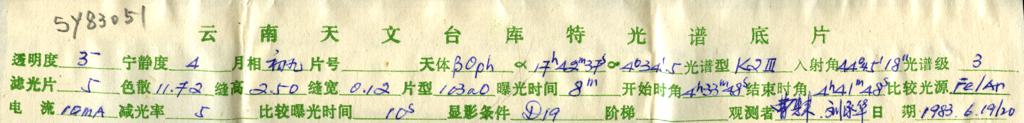 SY83051
云南天文台库特光谱底片
透明度 3 宁静度 4 月相 初九 片号 天体 βOph α 17h42m37s δ 4°34'.5 光谱型 K2III 入射角 44°45'18" 光谱级 3
滤光片 5 色散 11.72 缝高 2.50 缝宽 0.12 片型 103aO 曝光时间 8m 开始时角 4h33m48s 结束时角 4h41m48s 比较光源 Fe/Ar
电流 10mA 减光率 5 比较曝光时间 10s 显影条件 D19 阶梯 观测者 日期 1983.6.19/20